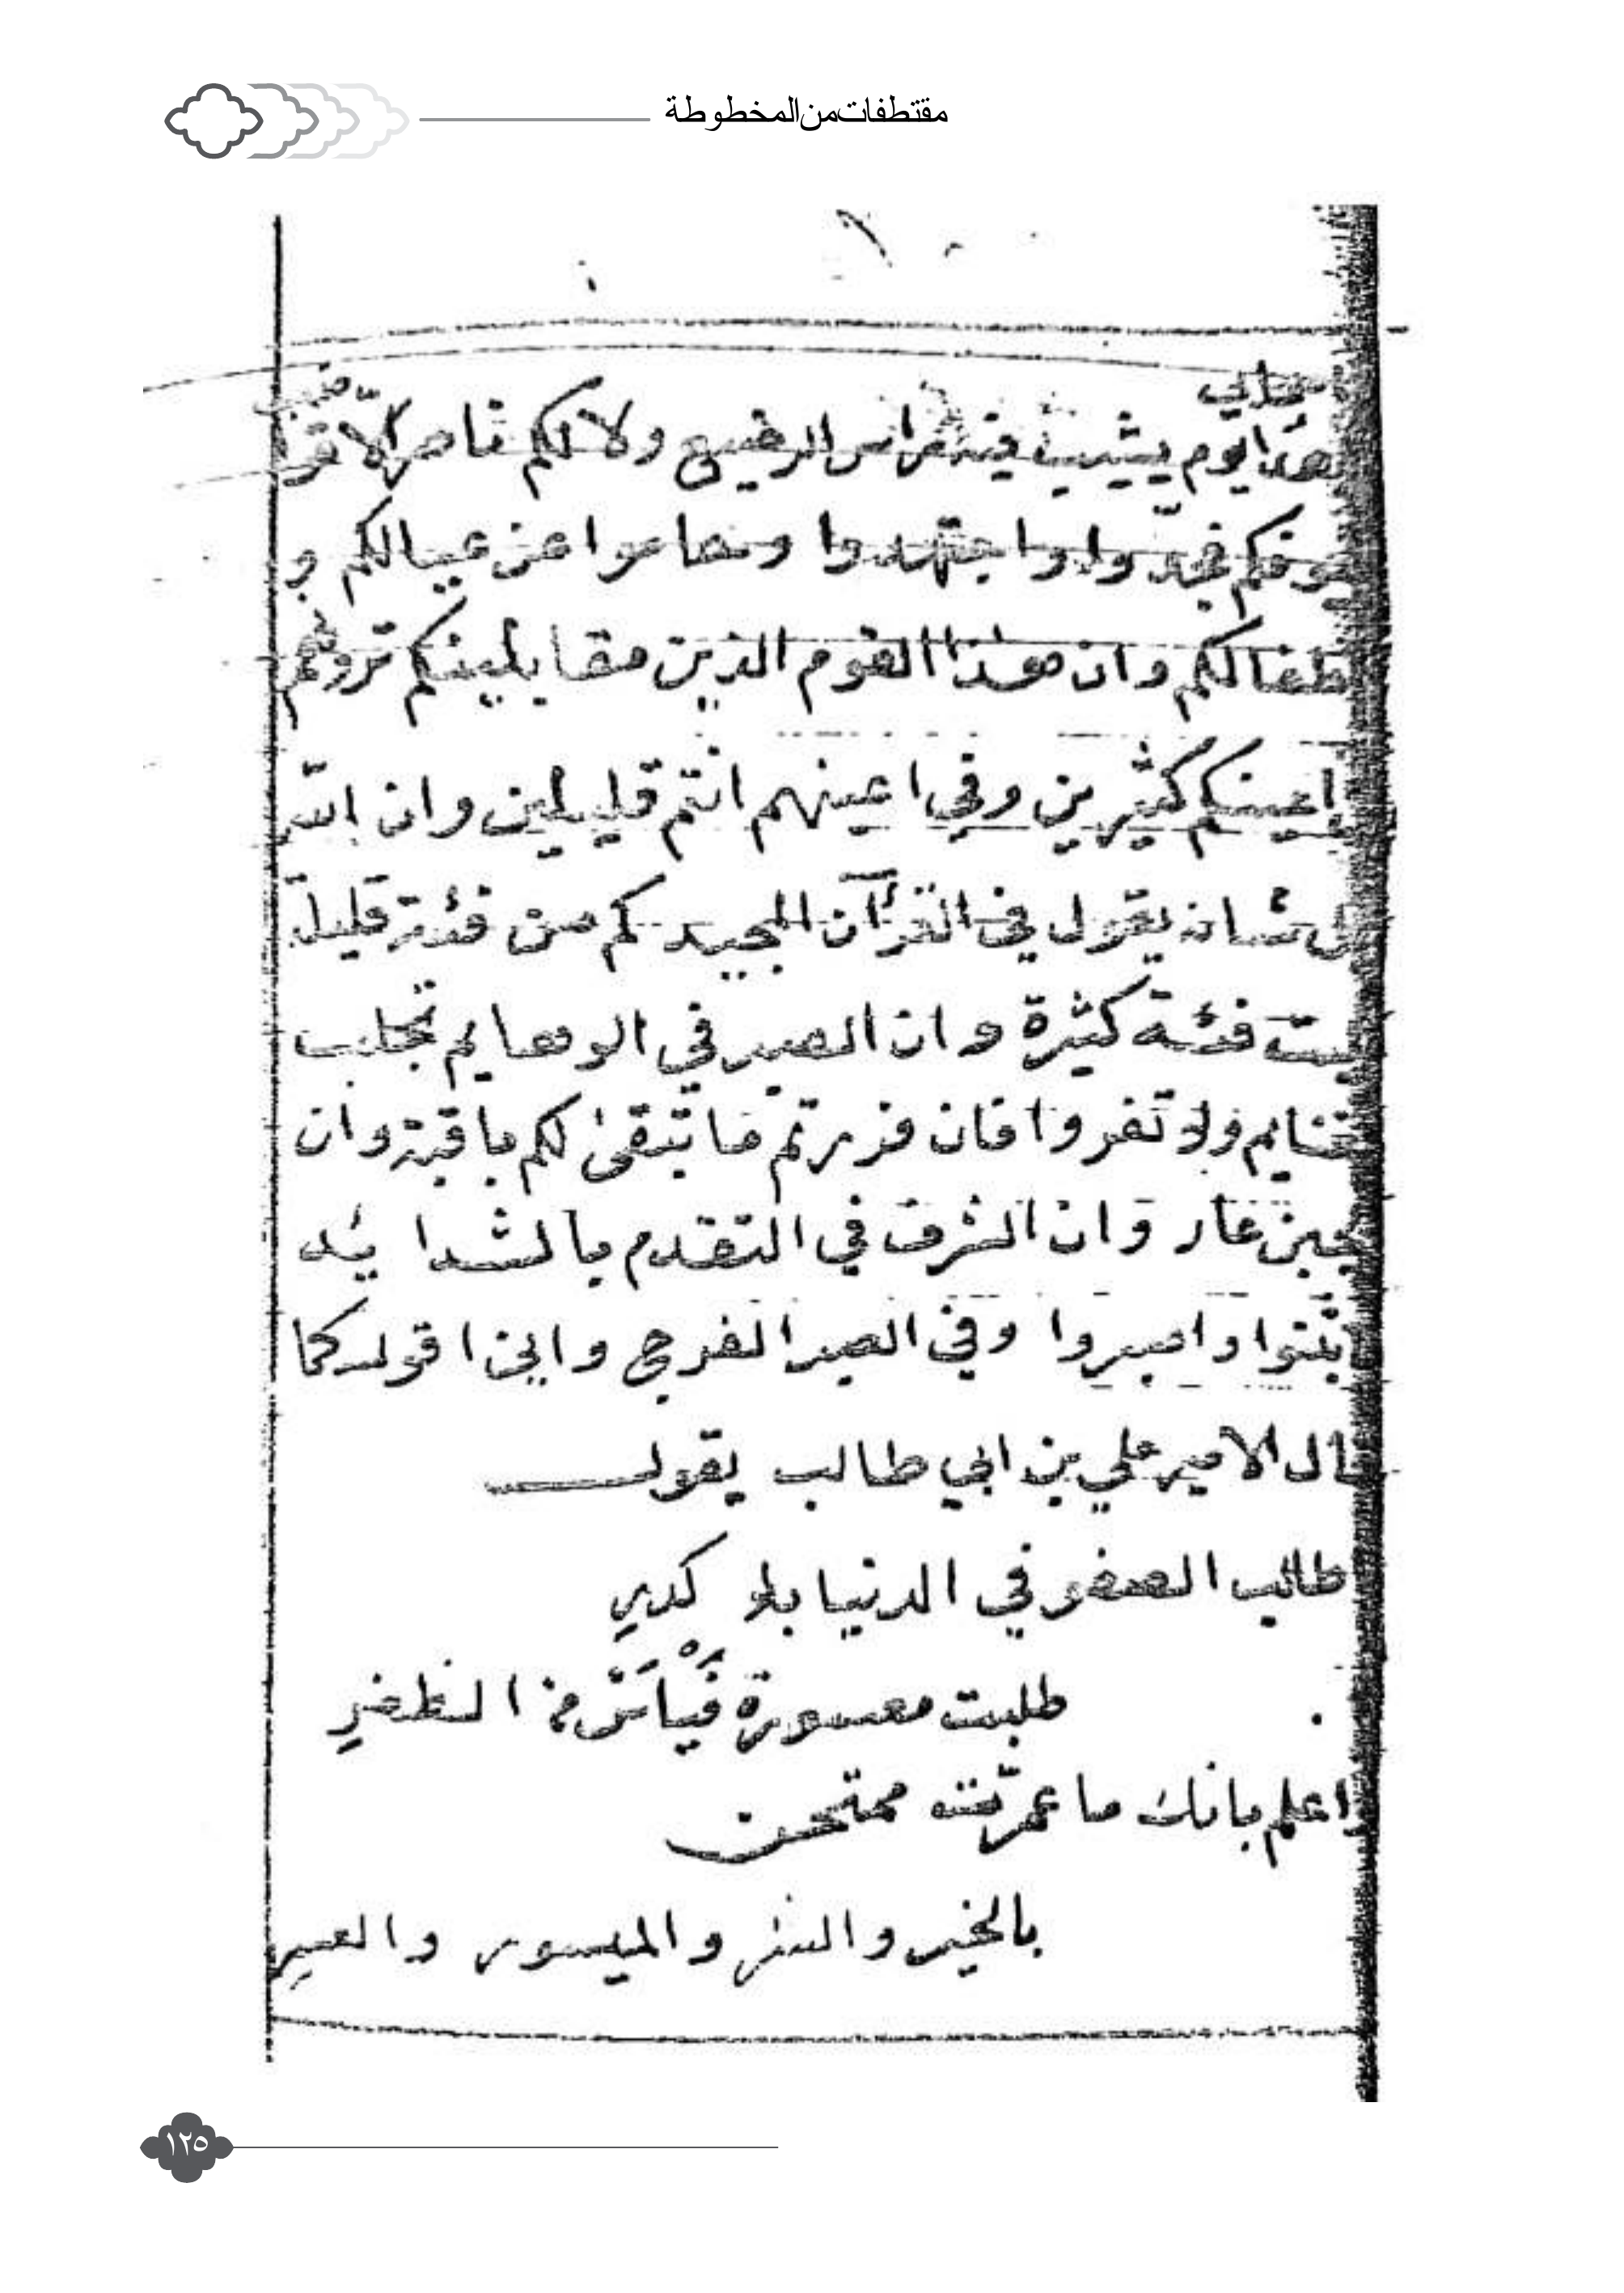 مقتطفات من المخطوطة
١٠
هذا يوم يشيب فيه راس الرضيع ولا لكم ناصر الّا
فجدّوا واجتهدوا وحاموا عن عيالكم و
طفالكم وان هذا القوم الذين مقابلينكم ترونهم
اعينكم كثيرين وفي اعينهم انتم قليلين وان الله
شانه يقول في القرآن المجيد كم من فئة قليلة
فئة كثيرة وان الصبر في الوهايم تجلب
ولا تفروا فان فررتم ما تبقى لكم باقية وان
عار وان الشرف في التقدم بالشدائد
واصبروا وفي الصبر الفرج واني اقول كما
قال الامير علي بن ابي طالب يقول
طالب الصفو في الدنيا بلا كدرٍ
طلبت معسورة فَيْاَسْ من الظفرِ
واعلم بانك ما عمرّت ممتحن
بالخير والشر والميسور والعسِر
١٢٥